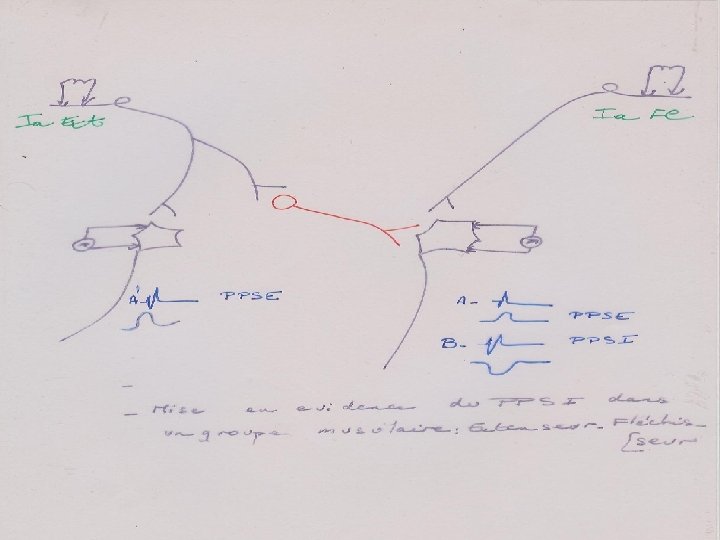 Ia Ext
Ia Fl
A'- PPSE
A- PPSE
B- PPSI
- Mise en evidence du PPSI dans
un groupe musulaire: Extenseur-Fléchis-
[seur